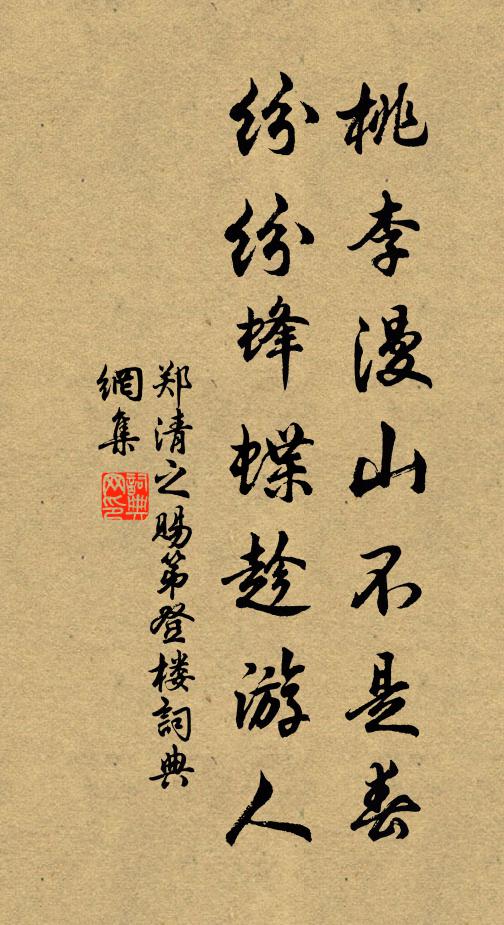 桃李漫山不是春
纷纷蜂蝶趁游人
郑清之赐第登楼詞典
網集
詞典
网印